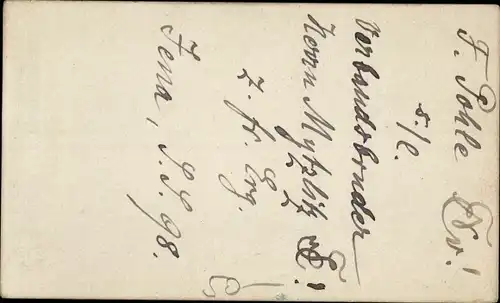 F. Pohle
s./l.
Verbandsbruder
Herrn Mytzlik
z. fr. Erg.
Jena, S.S. 98.